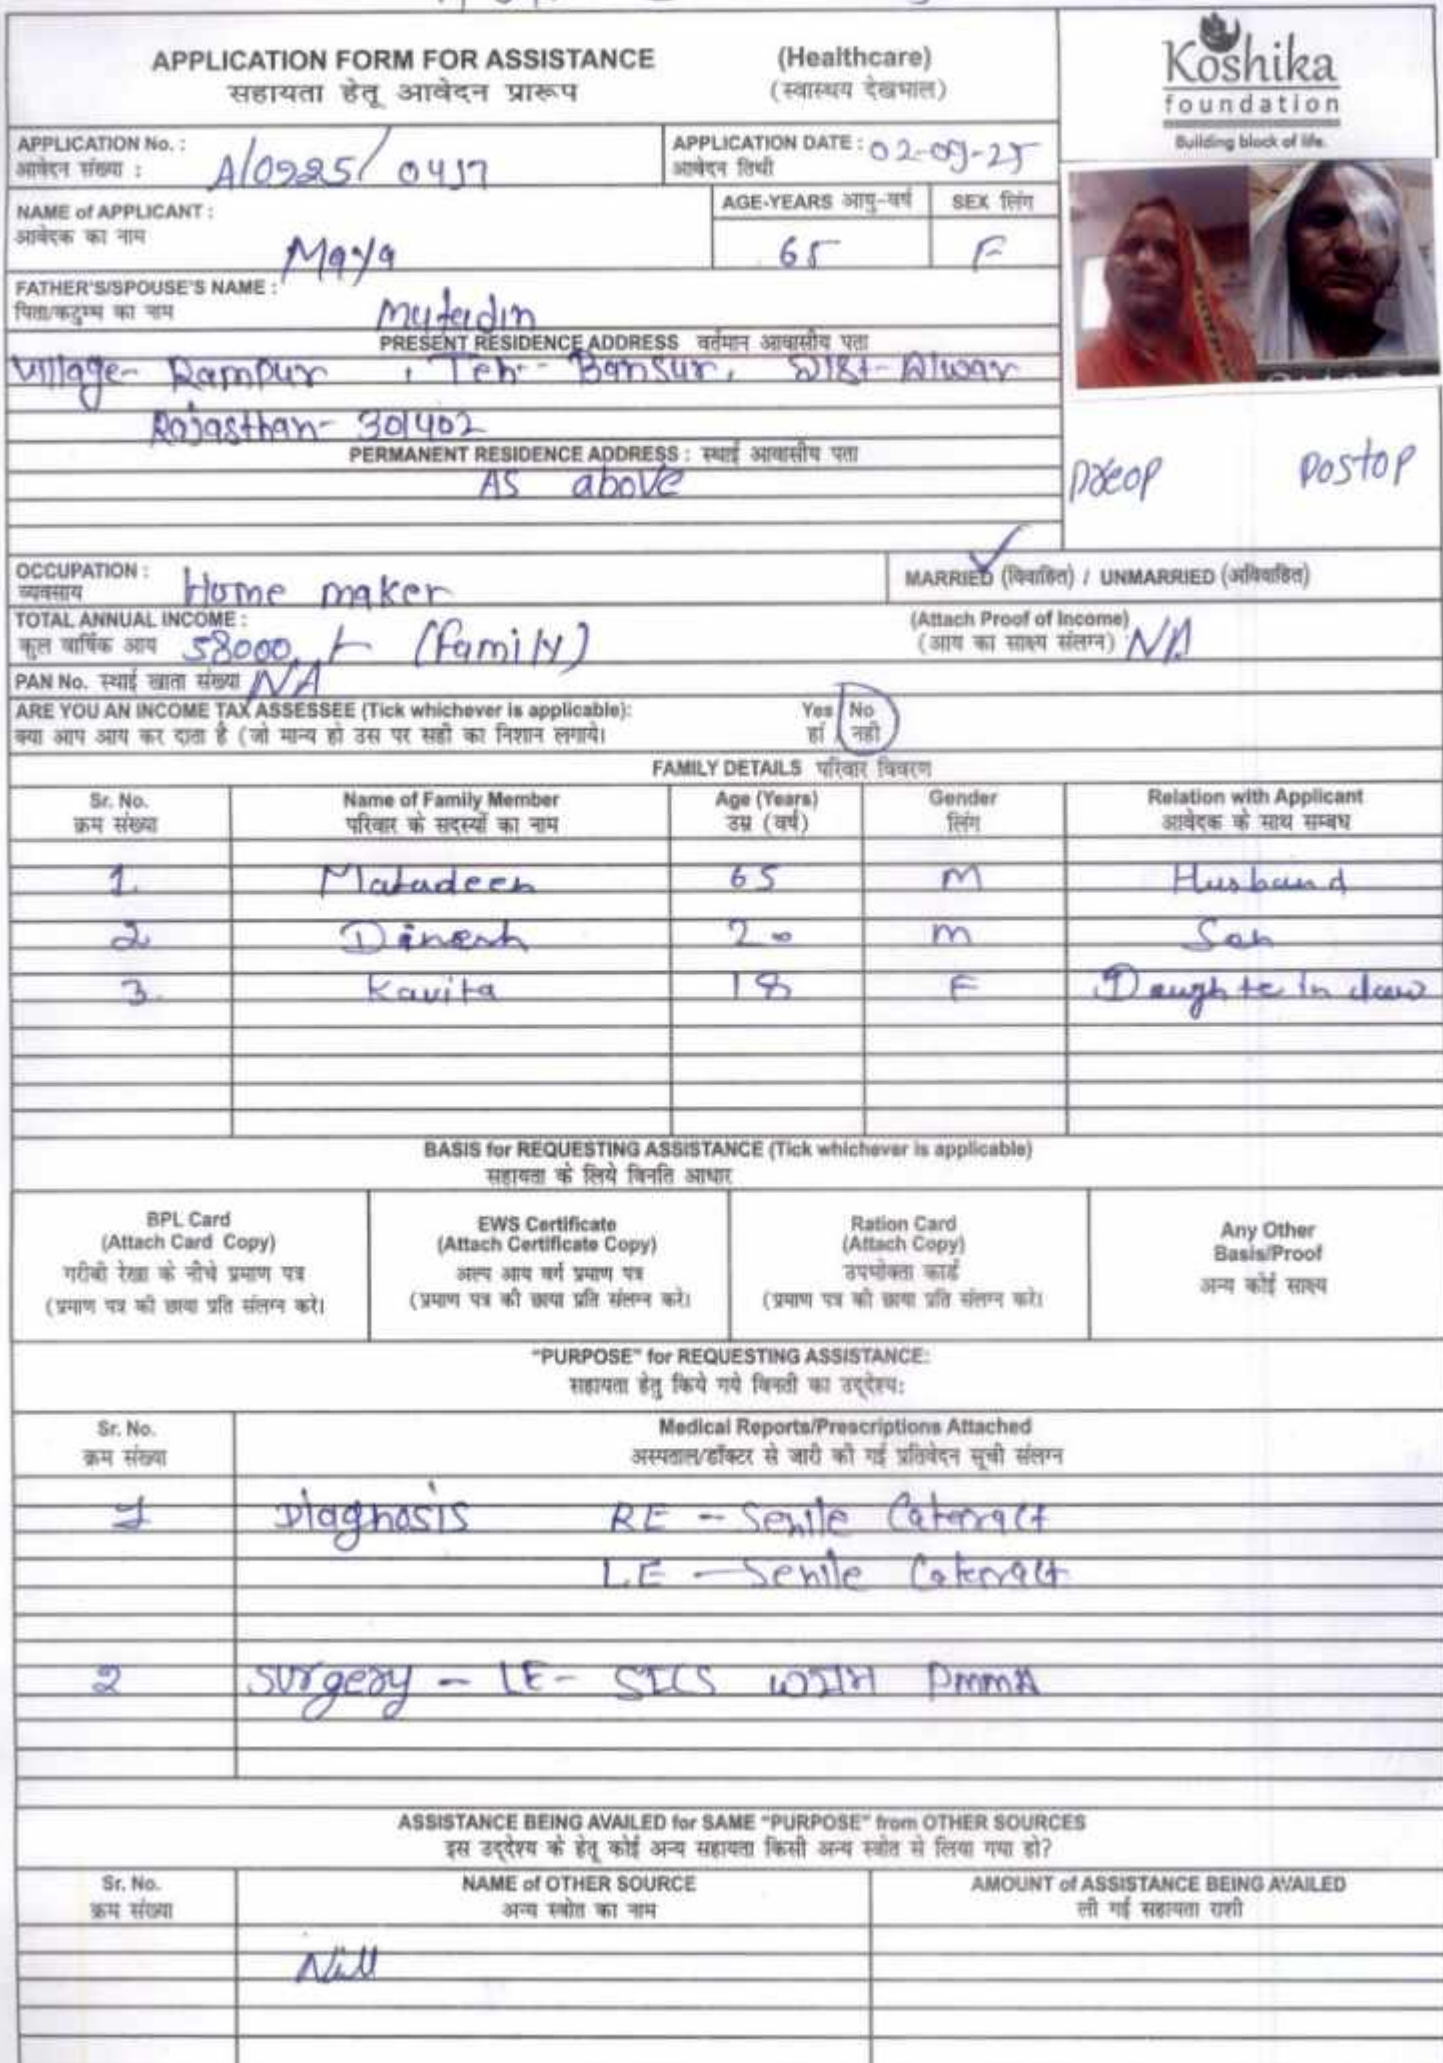 APPLICATION FORM FOR ASSISTANCE
(Healthcare)
सहायता हेतू आवेदन प्रारूप
(स्वास्थय देखभाल)
Koshika
foundation
Building block of life.
APPLICATION No. :
आवेदन संख्या :
A/0925/
APPLICATION DATE : 02-09-25
आवेदन तिथी
NAME of APPLICANT :
आवेदक का नाम
Maya
AGE-YEARS आयु-वर्ष
65
SEX लिंग
F
FATHER'S/SPOUSE'S NAME :
पिता/कटुम्ब का नाम
Mutadin
PRESENT RESIDENCE ADDRESS वर्तमान आवासीय पता
Village- Rampur , Teh- Bansur, Dist- Alwar
Rajasthan- 301402
PERMANENT RESIDENCE ADDRESS : स्थाई आवासीय पता
AS above
Preop
Postop
OCCUPATION :
व्यवसाय
Home maker
MARRIED (विवाहित) / UNMARRIED (अविवाहित)
TOTAL ANNUAL INCOME :
कुल वार्षिक आय
58000 /- (Family)
(Attach Proof of Income)
(आय का साक्ष्य संलग्न)
NA
PAN No. स्थाई खाता संख्या NA
ARE YOU AN INCOME TAX ASSESSEE (Tick whichever is applicable):
Yes / No
क्या आप आय कर दाता है (जो मान्य हो उस पर सही का निशान लगाये।
हां / नही
FAMILY DETAILS परिवार विवरण
Sr. No. Name of Family Member Age (Years) Gender Relation with Applicant
क्रम संख्या परिवार के सदस्यों का नाम उम्र (वर्ष) लिंग आवेदक के साथ सम्बध
1. Matadeen 65 M Husband
2 Dinesh 20 m Son
3. Kavita 18 F Daughte in law
BASIS for REQUESTING ASSISTANCE (Tick whichever is applicable)
सहायता के लिये विनति आधार
BPL Card
(Attach Card Copy)
गरीबी रेखा के नीचे प्रमाण पत्र
(प्रमाण पत्र की छाया प्रति संलग्न करे।
EWS Certificate
(Attach Certificate Copy)
अल्प आय वर्ग प्रमाण पत्र
(प्रमाण पत्र की छाया प्रति संलग्न करे।
Ration Card
(Attach Copy)
उपभोक्ता कार्ड
(प्रमाण पत्र की छाया प्रति संलग्न करे।
Any Other
Basis/Proof
अन्य कोई साक्ष्य
"PURPOSE" for REQUESTING ASSISTANCE:
सहायता हेतु किये गये विनती का उद्देश्य:
Sr. No. Medical Reports/Prescriptions Attached
क्रम संख्या अस्पताल/डॉक्टर से जारी की गई प्रतिवेदन सूची संलग्न
1 Diagnosis RE - Senile Cateract
LE - Senile Cateract
2 Surgery - LE- SICS WITH PMMA
ASSISTANCE BEING AVAILED for SAME "PURPOSE" from OTHER SOURCES
इस उद्देश्य के हेतू कोई अन्य सहायता किसी अन्य स्त्रोत से लिया गया हो?
Sr. No. NAME of OTHER SOURCE AMOUNT of ASSISTANCE BEING AVAILED
क्रम संख्या अन्य स्त्रोत का नाम ली गई सहायता राशी
Nill